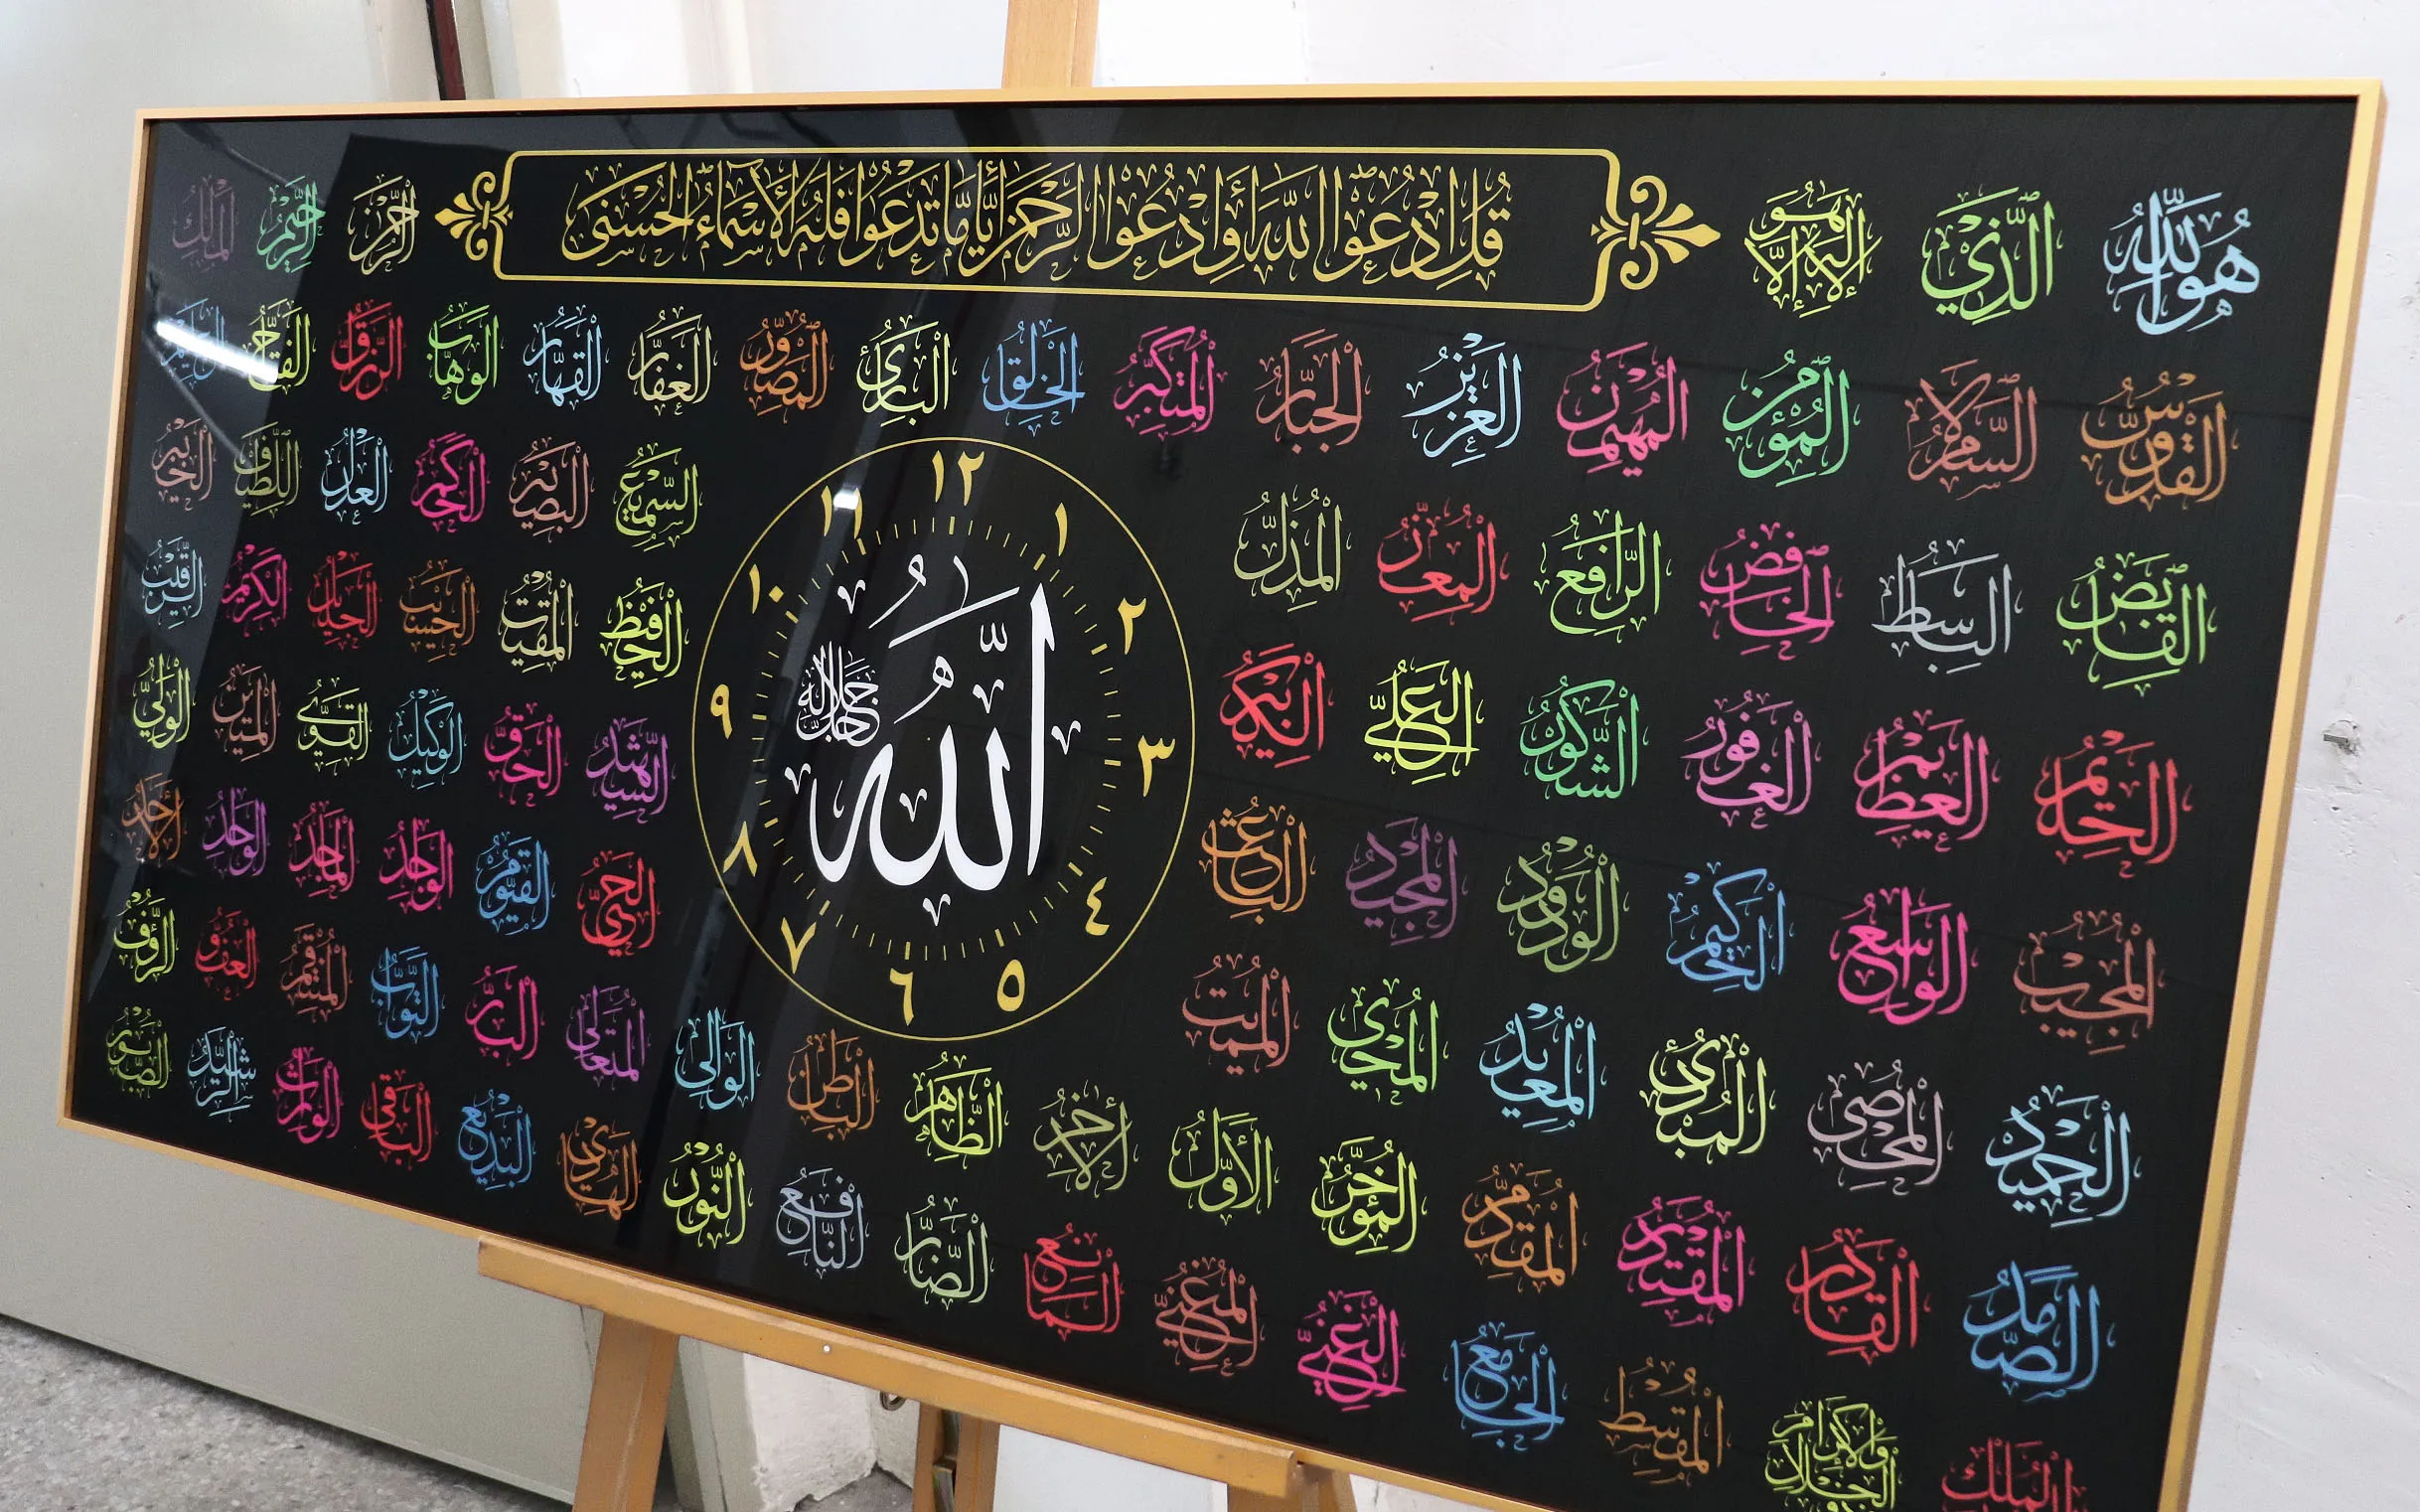 هُوَ اللّٰهُ الَّذِيْ لَا إِلٰهَ إِلَّا هُوَ
قُلِ ادْعُوا اللّٰهَ أَوِ ادْعُوا الرَّحْمٰنَ أَيًّا مَّا تَدْعُوا فَلَهُ الْأَسْمَاءُ الْحُسْنَى
الرَّحْمٰنُ الرَّحِيْمُ الْمَلِكُ
الْقُدُّوْسُ السَّلَامُ الْمُؤْمِنُ الْمُهَيْمِنُ الْعَزِيْزُ الْجَبَّارُ الْمُتَكَبِّرُ الْخَالِقُ الْبَارِئُ الْمُصَوِّرُ الْغَفَّارُ الْقَهَّارُ الْوَهَّابُ الرَّزَّاقُ الْفَتَّاحُ الْعَلِيْمُ
الْقَابِضُ الْبَاسِطُ الْخَافِضُ الرَّافِعُ الْمُعِزُّ الْمُذِلُّ السَّمِيْعُ الْبَصِيْرُ الْحَكَمُ الْعَدْلُ اللَّطِيْفُ الْخَبِيْرُ
الْحَلِيْمُ الْعَظِيْمُ الْغَفُوْرُ الشَّكُوْرُ الْعَلِيُّ الْكَبِيْرُ الْحَفِيْظُ الْمُقِيْتُ الْحَسِيْبُ الْجَلِيْلُ الْكَرِيْمُ الرَّقِيْبُ
الْمُجِيْبُ الْوَاسِعُ الْحَكِيْمُ الْوَدُوْدُ الْمَجِيْدُ الْبَاعِثُ الشَّهِيْدُ الْحَقُّ الْوَكِيْلُ الْقَوِيُّ الْمَتِيْنُ الْوَلِيُّ
الْحَمِيْدُ الْمُحْصِي الْمُبْدِئُ الْمُعِيْدُ الْمُحْيِ الْمُمِيْتُ الْحَيُّ الْقَيُّوْمُ الْوَاجِدُ الْمَاجِدُ الْوَاحِدُ الْأَحَدُ
الصَّمَدُ الْقَادِرُ الْمُقْتَدِرُ الْمُقَدِّمُ الْمُؤَخِّرُ الْأَوَّلُ الْآخِرُ الظَّاهِرُ الْبَاطِنُ الْوَالِي الْمُتَعَالِي الْبَرُّ التَّوَّابُ الْمُنْتَقِمُ الْعَفُوُّ الرَّؤُفُ
الْمُلْكِ ذُو الْجَلَالِ وَالْإِكْرَامِ الْمُقْسِطُ الْجَامِعُ الْغَنِيُّ الْمُغْنِيُ الْمَانِعُ الضَّارُّ النَّافِعُ النُّوْرُ الْهَادِيُ الْبَدِيْعُ الْبَاقِي الْوَارِثُ الرَّشِيْدُ الصَّبُوْرُ
١٢ ١ ٢ ٣ ٤ ٥ ٦ ٧ ٨ ٩ ١٠ ١١
اَللّٰهُ جَلَّ جَلَالُهُ